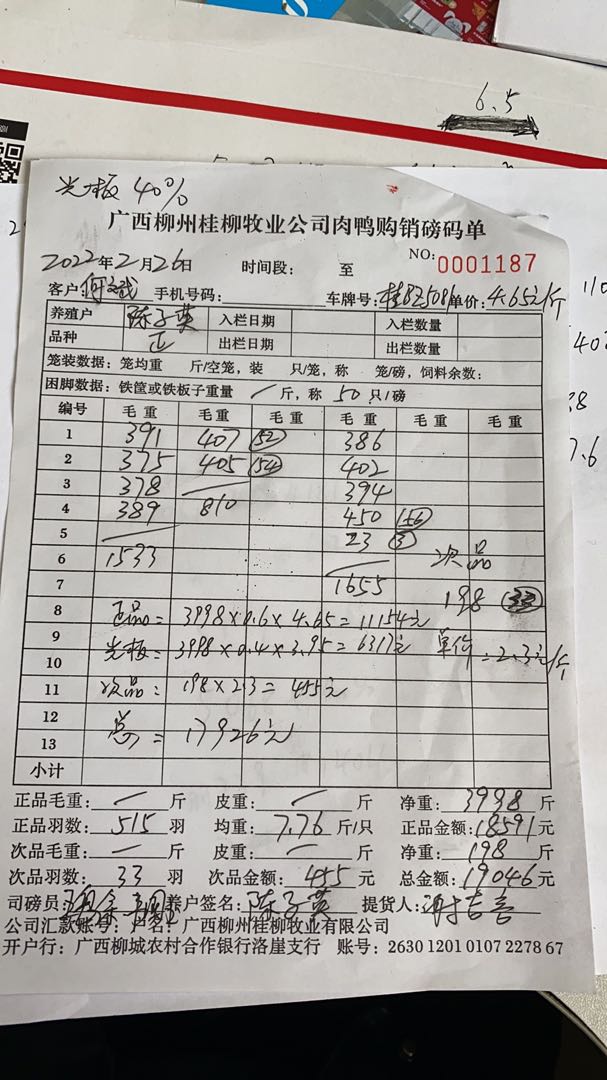 6.5
光板 40%
广西柳州桂柳牧业公司肉鸭购销磅码单
2022年2月26日 时间段: 至 NO: 0001187
客户: 手机号码: 车牌号: 单价: 4.65元/斤
养殖户 陈子英 入栏日期 入栏数量
品种 正 出栏日期 出栏数量
笼装数据: 笼均重 斤/空笼, 装 只/笼, 称 笼/磅, 饲料余数:
困脚数据: 铁筐或铁板子重量 / 斤, 称 50 只/磅
编号 毛重 毛重 毛重 毛重 毛重 毛重
1 391 407 (52) 386
2 375 405 (54) 402
3 378 394
4 389 810 450 (56)
5 23 (3)
6 1533 次品
7 1655 198 (33)
8 正品= 3998×0.6×4.65=11154元
9 光板= 3998×0.4×3.95=6317元 单价=2.3元/斤
10
11 次品: 198×2.3=455元
12 总=17926元
13
小计
正品毛重: / 斤 皮重: / 斤 净重: 3998 斤
正品羽数: 515 羽 均重: 7.76 斤/只 正品金额: 18591 元
次品毛重: / 斤 皮重: / 斤 净重: 198 斤
次品羽数: 33 羽 次品金额: 455 元 总金额: 19046 元
司磅员: 养户签名: 陈子英 提货人:
公司汇款账号: 户名: 广西柳州桂柳牧业有限公司
开户行: 广西柳城农村合作银行洛崖支行 账号: 2630 1201 0107 2278 67